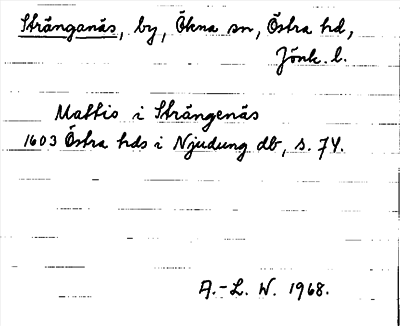 Stränganäs, by, Ökna sn, Östra hd,
Jönk. l.
Mattis i Strängenäs
1603 Östra hds i Njudung db, s. 74.
A.-L. W. 1968.